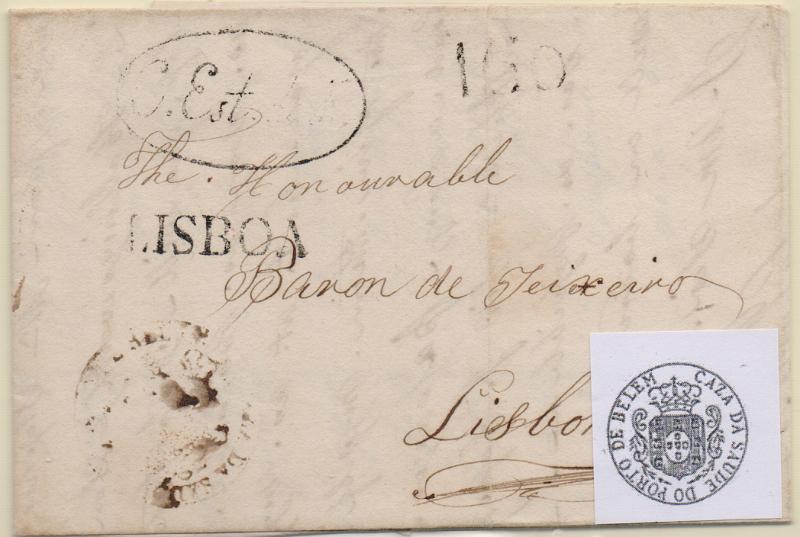 C. Est.
150
The Honourable
LISBOA
Baron de Teixeiro
Lisbon
CAZA DA SAUDE DO PORTO DE BELEM